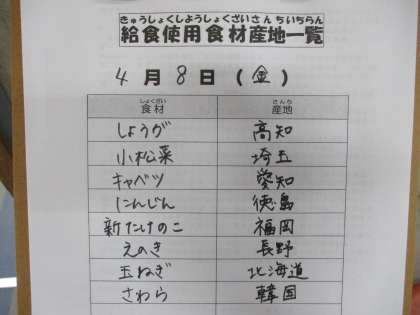 きゅうしょくしようしょくざいさんちいちらん
給食使用食材産地一覧
4月8日(金)
しょくざい さんち
食材 産地
しょうが 高知
小松菜 埼玉
キャベツ 愛知
にんじん 徳島
新たけのこ 福岡
えのき 長野
玉ねぎ 北海道
さわら 韓国